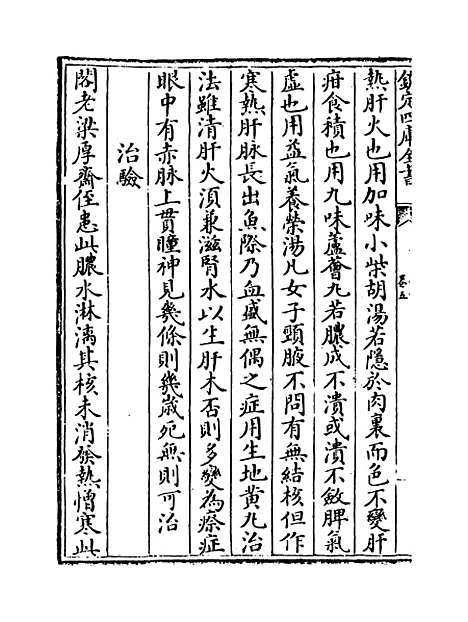 欽定四庫全書
卷五
熱肝火也用加味小柴胡湯若隱於肉裏而色不變肝
疳食積也用九味蘆薈丸若膿成不潰或潰不斂脾氣
虛也用益氣養榮湯凡女子頸腋不問有無結核但作
寒熱肝脉長出魚際乃血盛無偶之症用生地黄丸治
法雖清肝火湏兼滋腎水以生肝木否則多變為瘵症
眼中有赤脉上貫瞳神見幾條則幾歲死無則可治
治驗
閣老梁厚齋侄患此膿水淋漓其核未消發熱憎寒此